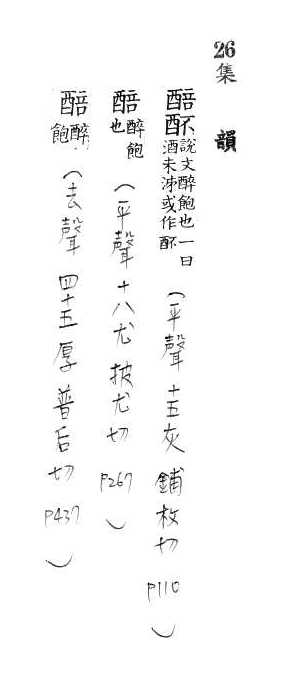 26集韻
醅䣧說文醉飽也一曰酒未沛或作䣧（平聲十五灰鋪枚切P110）
醅醉飽也（平聲十八尤披尤切P267）
醅醉飽（去聲四十五厚普后切P437）